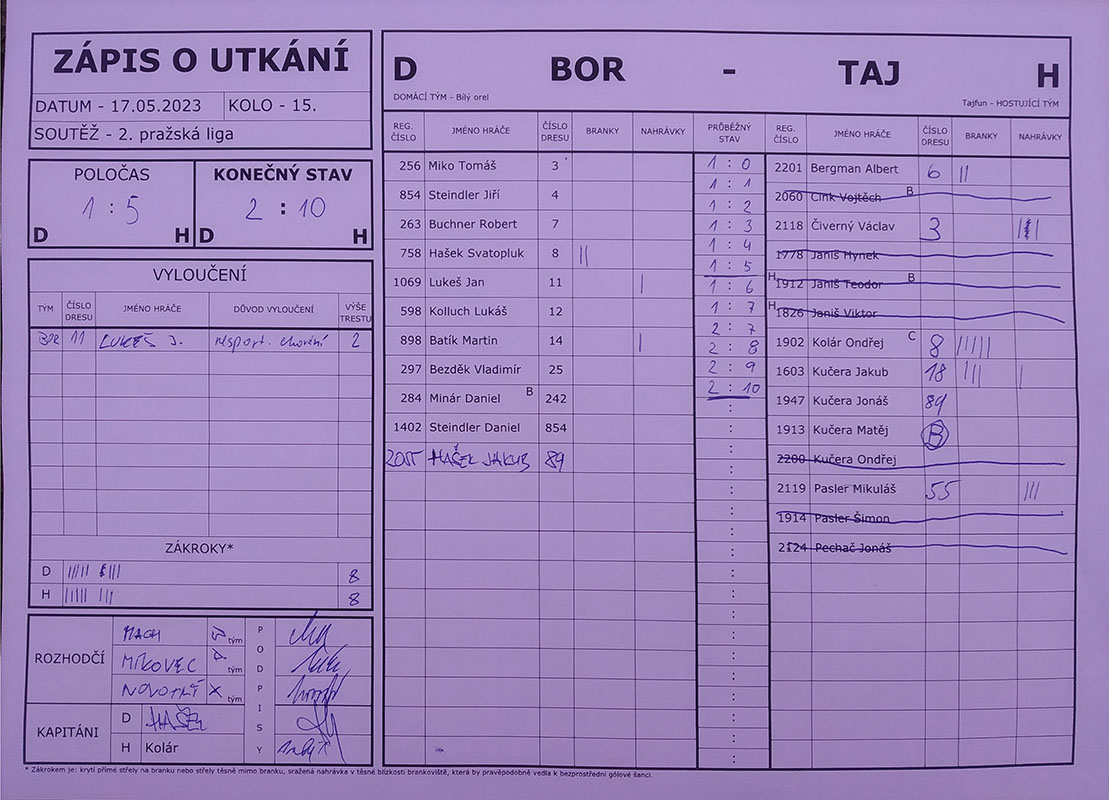 ZÁPIS O UTKÁNÍ
DATUM - 17.05.2023 KOLO - 15.
SOUTĚŽ - 2. pražská liga
POLOČAS KONEČNÝ STAV
1 : 5 2 : 10
D H D H
VYLOUČENÍ
TÝM ČÍSLO DRESU JMÉNO HRÁČE DŮVOD VYLOUČENÍ VÝŠE TRESTU
BOR 11 LUKEŠ J. nesport. chování 2
ZÁKROKY*
D 8
H 8
ROZHODČÍ
tým
MIKOVEC tým
NOVOTNÝ X tým
PODPISY
KAPITÁNI
D HAŠEK
H Kolár
D BOR - TAJ H
DOMÁCÍ TÝM - Bílý orel Tajfun - HOSTUJÍCÍ TÝM
REG. ČÍSLO JMÉNO HRÁČE ČÍSLO DRESU BRANKY NAHRÁVKY PRŮBĚŽNÝ STAV REG. ČÍSLO JMÉNO HRÁČE ČÍSLO DRESU BRANKY NAHRÁVKY
256 Miko Tomáš 3
854 Steindler Jiří 4
263 Buchner Robert 7
758 Hašek Svatopluk 8 ||
1069 Lukeš Jan 11 |
598 Kolluch Lukáš 12
898 Batík Martin 14 |
297 Bezděk Vladimír 25
284 Minár Daniel B 242
1402 Steindler Daniel 854
2055 HAŠEK JAKUB 89
1 : 0
1 : 1
1 : 2
1 : 3
1 : 4
1 : 5
1 : 6
1 : 7
2 : 7
2 : 8
2 : 9
2 : 10
2201 Bergman Albert 6 ||
2060 Cink Vojtěch B
2118 Čiverný Václav 3
1778 Janiš Hynek
H 1912 Janiš Teodor B
H 1826 Janiš Viktor
1902 Kolár Ondřej C 8 |||||
1603 Kučera Jakub 18 ||| |
1947 Kučera Jonáš 89
1913 Kučera Matěj B
2200 Kučera Ondřej
2119 Pasler Mikuláš 55 |||
1914 Pasler Šimon
2124 Pechač Jonáš
* Zákrokem je: krytí přímé střely na branku nebo střely těsně mimo branku, sražená nahrávka v těsné blízkosti brankoviště, která by pravěpodobně vedla k bezprostřední gólové šanci.